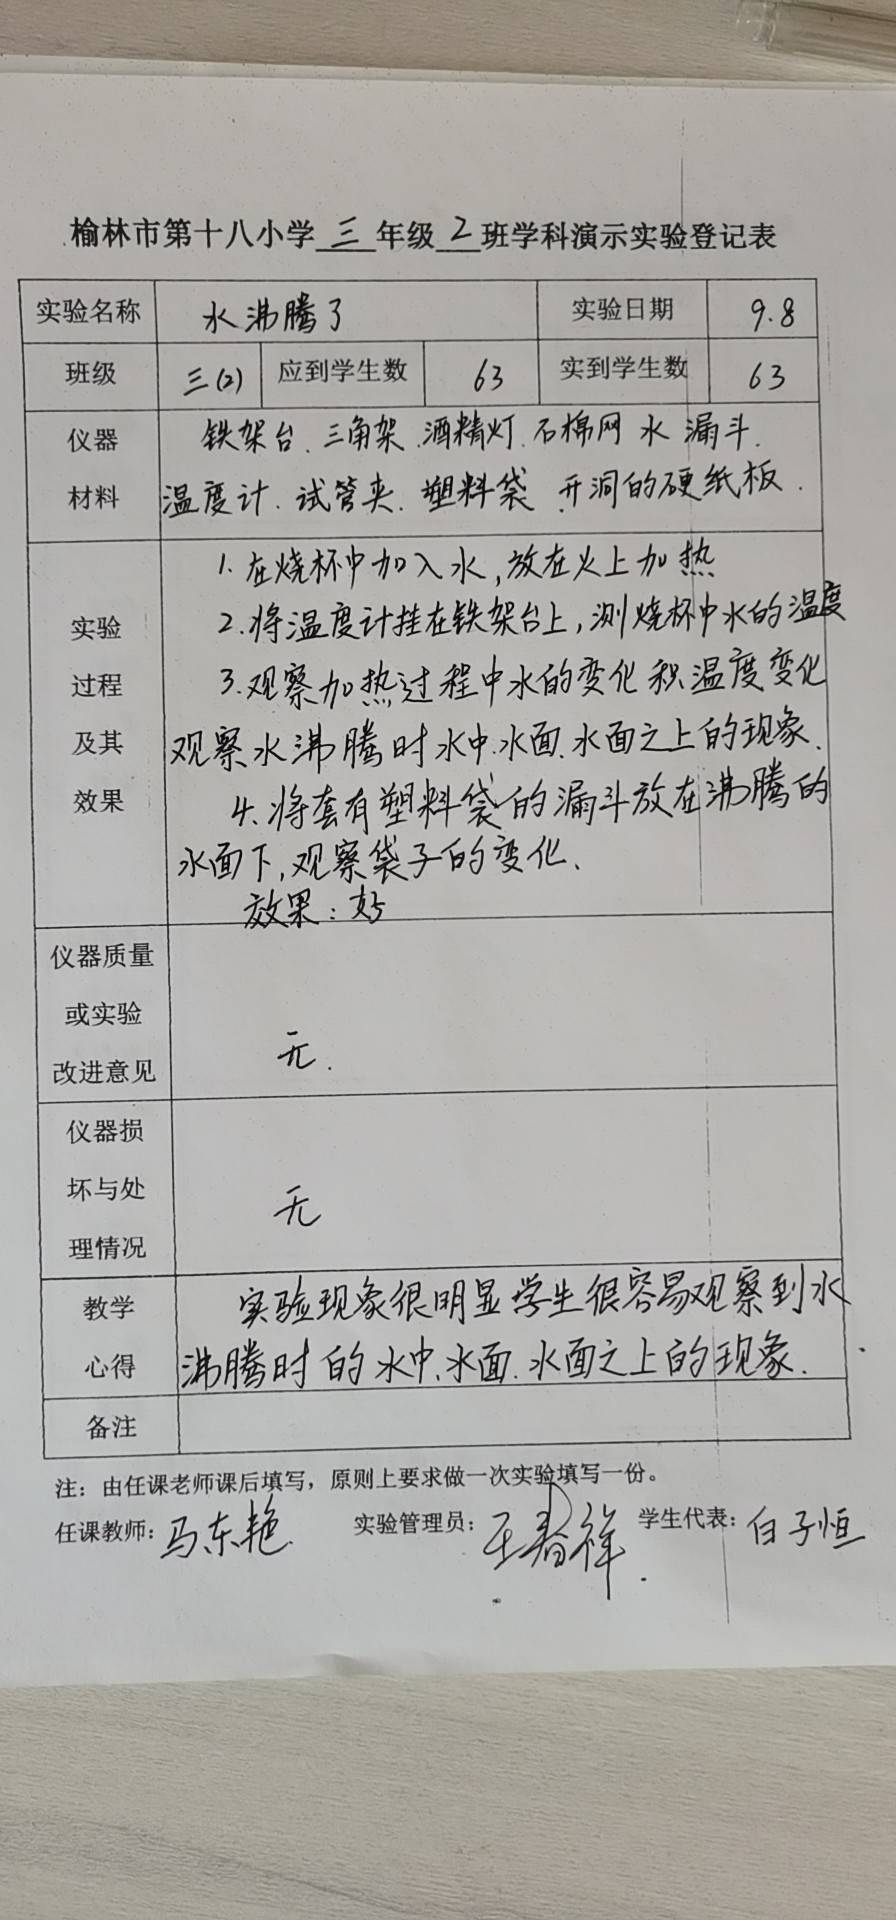 榆林市第十八小学 三 年级 2 班学科演示实验登记表
实验名称 水沸腾了 实验日期 9.8
班级 三(2) 应到学生数 63 实到学生数 63
仪器 铁架台、三角架、酒精灯、石棉网 水 漏斗.
材料 温度计、试管夹、塑料袋、开洞的硬纸板.
1.在烧杯中加入水,放在火上加热
实验 2.将温度计挂在铁架台上,测烧杯中水的温度
过程 3.观察加热过程中水的变化积温度变化
及其 观察水沸腾时水中.水面.水面之上的现象.
效果 4.将套有塑料袋的漏斗放在沸腾的
水面下,观察袋子的变化.
效果:好
仪器质量
或实验
改进意见 无.
仪器损
坏与处 无
理情况
教学 实验现象很明显学生很容易观察到水
心得 沸腾时的水中.水面.水面之上的现象.
备注
注：由任课老师课后填写，原则上要求做一次实验填写一份。
任课教师：马东艳 实验管理员：王春祥 学生代表：白子恒